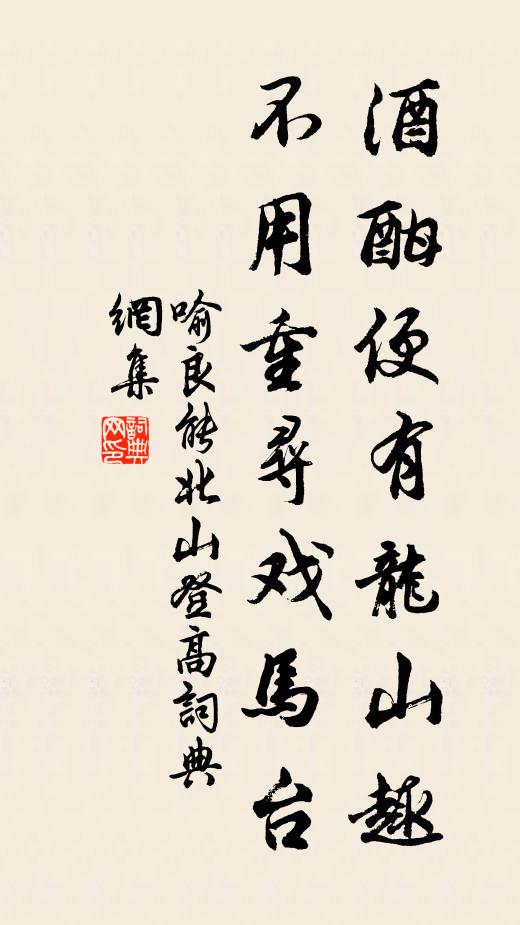 酒酣便有龍山趣
不用重尋戏馬台
喻良能北山登高詞典
網集
詞典网印